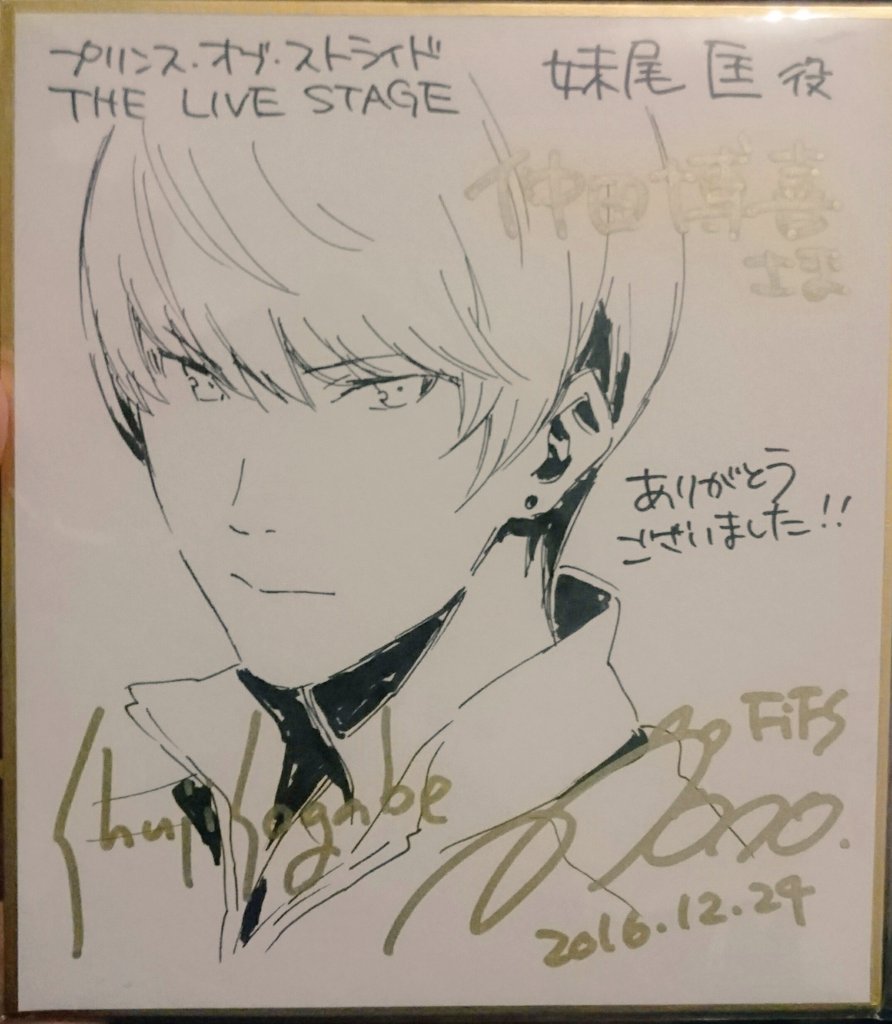 プリンス・オブ・ストライド
THE LIVE STAGE
妹尾 匡 役
仲田博喜
さま
ありがとう
ございました!!
Shuji Sogabe
FiFS
2016.12.24